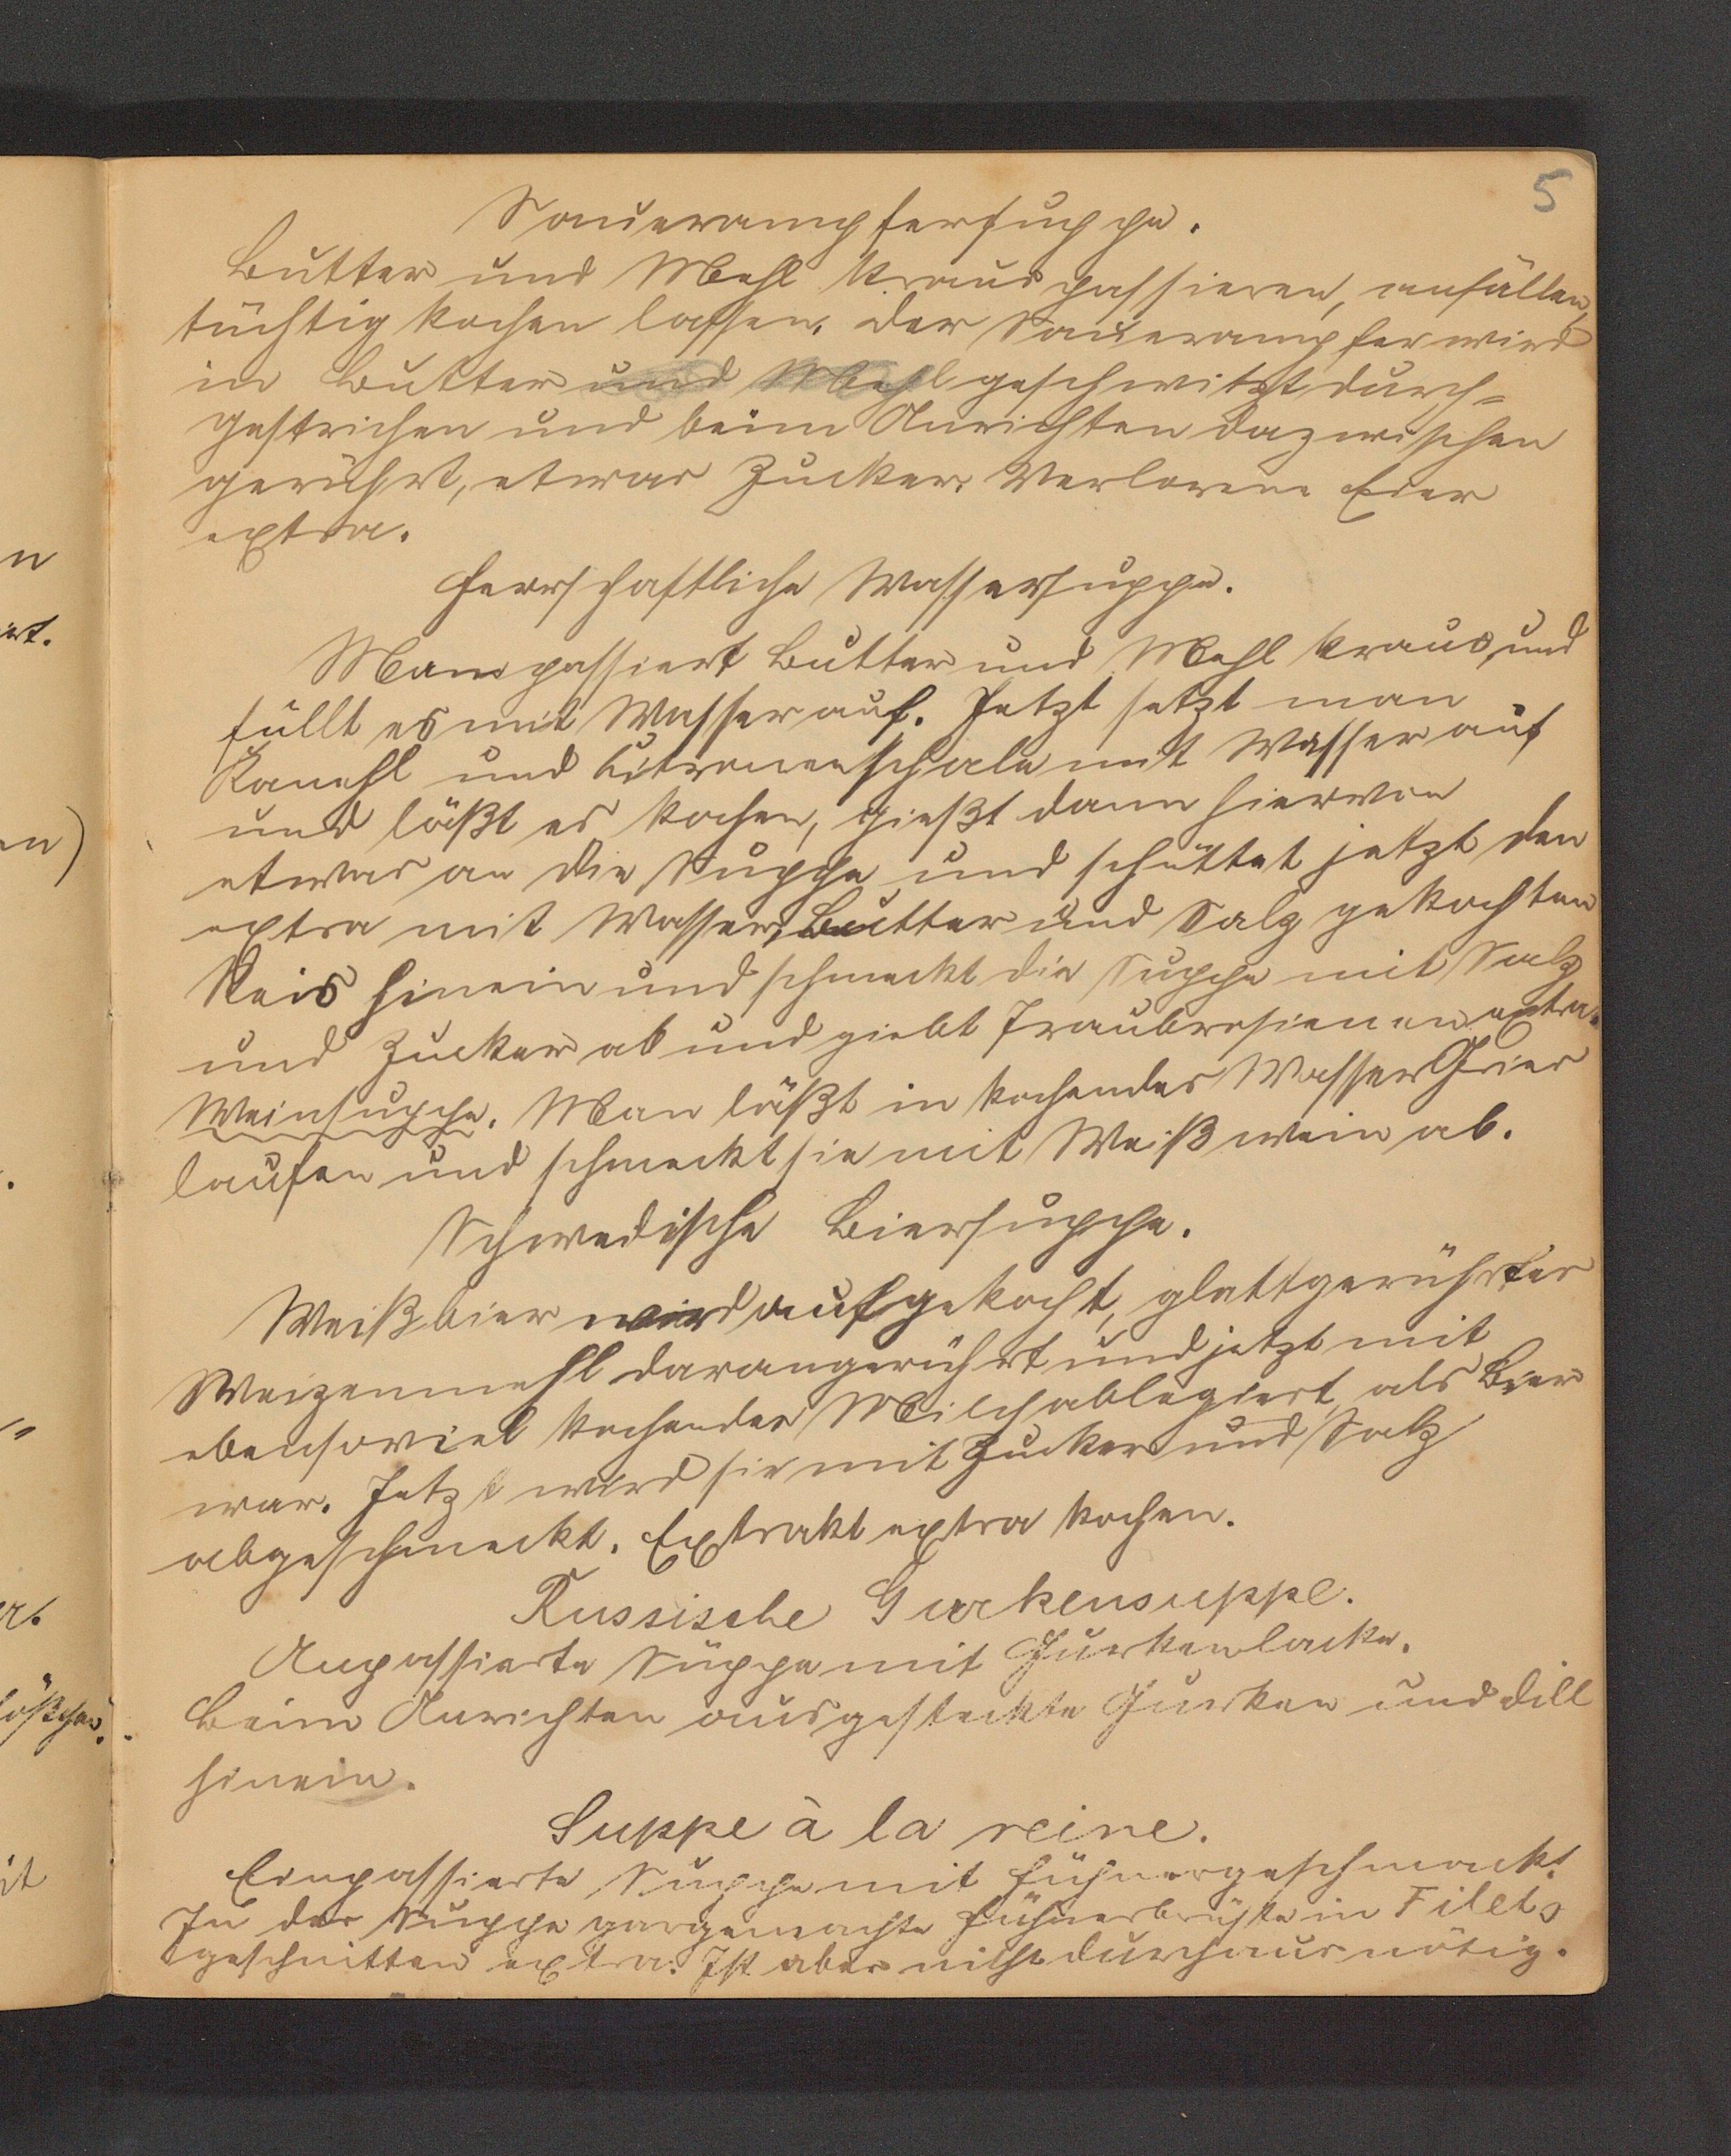 5
Sauerampfersuppe.
Butter und Mehl kraus passieren, anfüllen,
tüchtig kochen lassen. Der Sauerampfer wird
in Butter und Mehl geschwitzt durch-
gestrichen und beim Anrichten dazwischen
gerührt, etwas Zucker. Verlorene Eier
extra.
Herrschaftliche Wassersuppe.
Man passiert Butter und Mehl kraus, und
füllt es mit Wasser auf. Jetzt setzt man
Kanehl und Citronenschale mit Wasser auf
und läßt es kochen, gießt dann hiervon
etwas an die Suppe und schüttet jetzt den
extra mit Wasser, Butter und Salz gekochten
Reis hinein und schmeckt die Suppe mit Salz
und Zucker ab und giebt Traubrosienen extra.
Weinsuppe. Man läßt in kochendes Wasser Gries
laufen und schmeckt sie mit Weißwein ab.
Schwedische Biersuppe.
Weißbier wird aufgekocht, glattgerührtes
Weizenmehl darangerührt und jetzt mit
ebensoviel kochender Milch ablegiert, als Bier
war. Jetzt wird sie mit Zucker und Salz
abgeschmeckt. Extrakt extra kochen.
Russische Gurkensuppe.
Anpassierte Suppe mit Gurkenlacke.
Beim Anrichten ausgesteckte Gurken und Dill
hinein.
Suppe à la reine.
Einpassierte Suppe mit Hühnergeschmack.
In der Suppe gargemachte Hühnerbrüste in Filets
geschnitten extra. Ist aber nicht durchaus nötig.